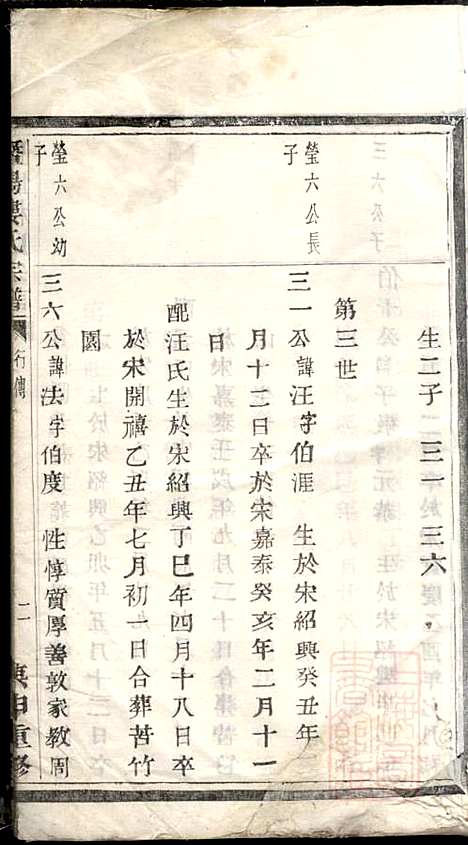 生二子 三一 三六
第三世
瑩六公長子
三一公諱汪字伯涯 生於宋紹興癸丑年三
月十二日卒於宋嘉泰癸亥年二月十一
日
配汪氏生於宋紹興丁巳年四月十八日卒
於宋開禧乙丑年七月初一日合葬苦竹
園
瑩六公幼子
三六公諱法字伯度 性惇質厚善敦家教周
氏宗譜 行傳 二 重修